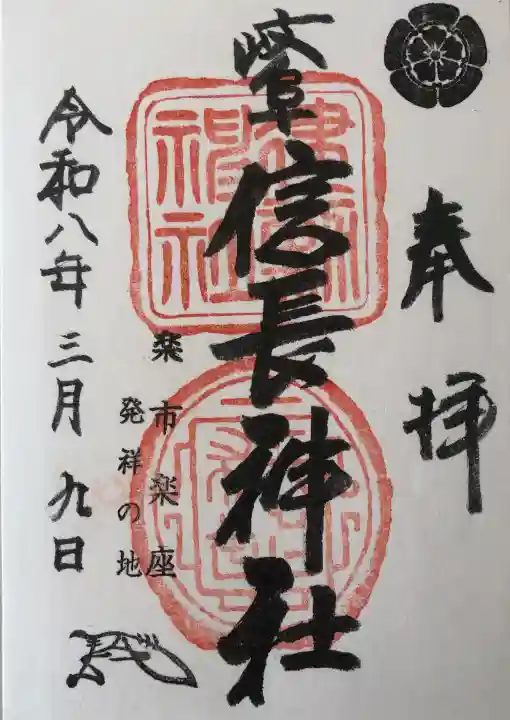 奉拝
岐阜信長神社
楽市楽座
発祥の地
令和八年三月九日